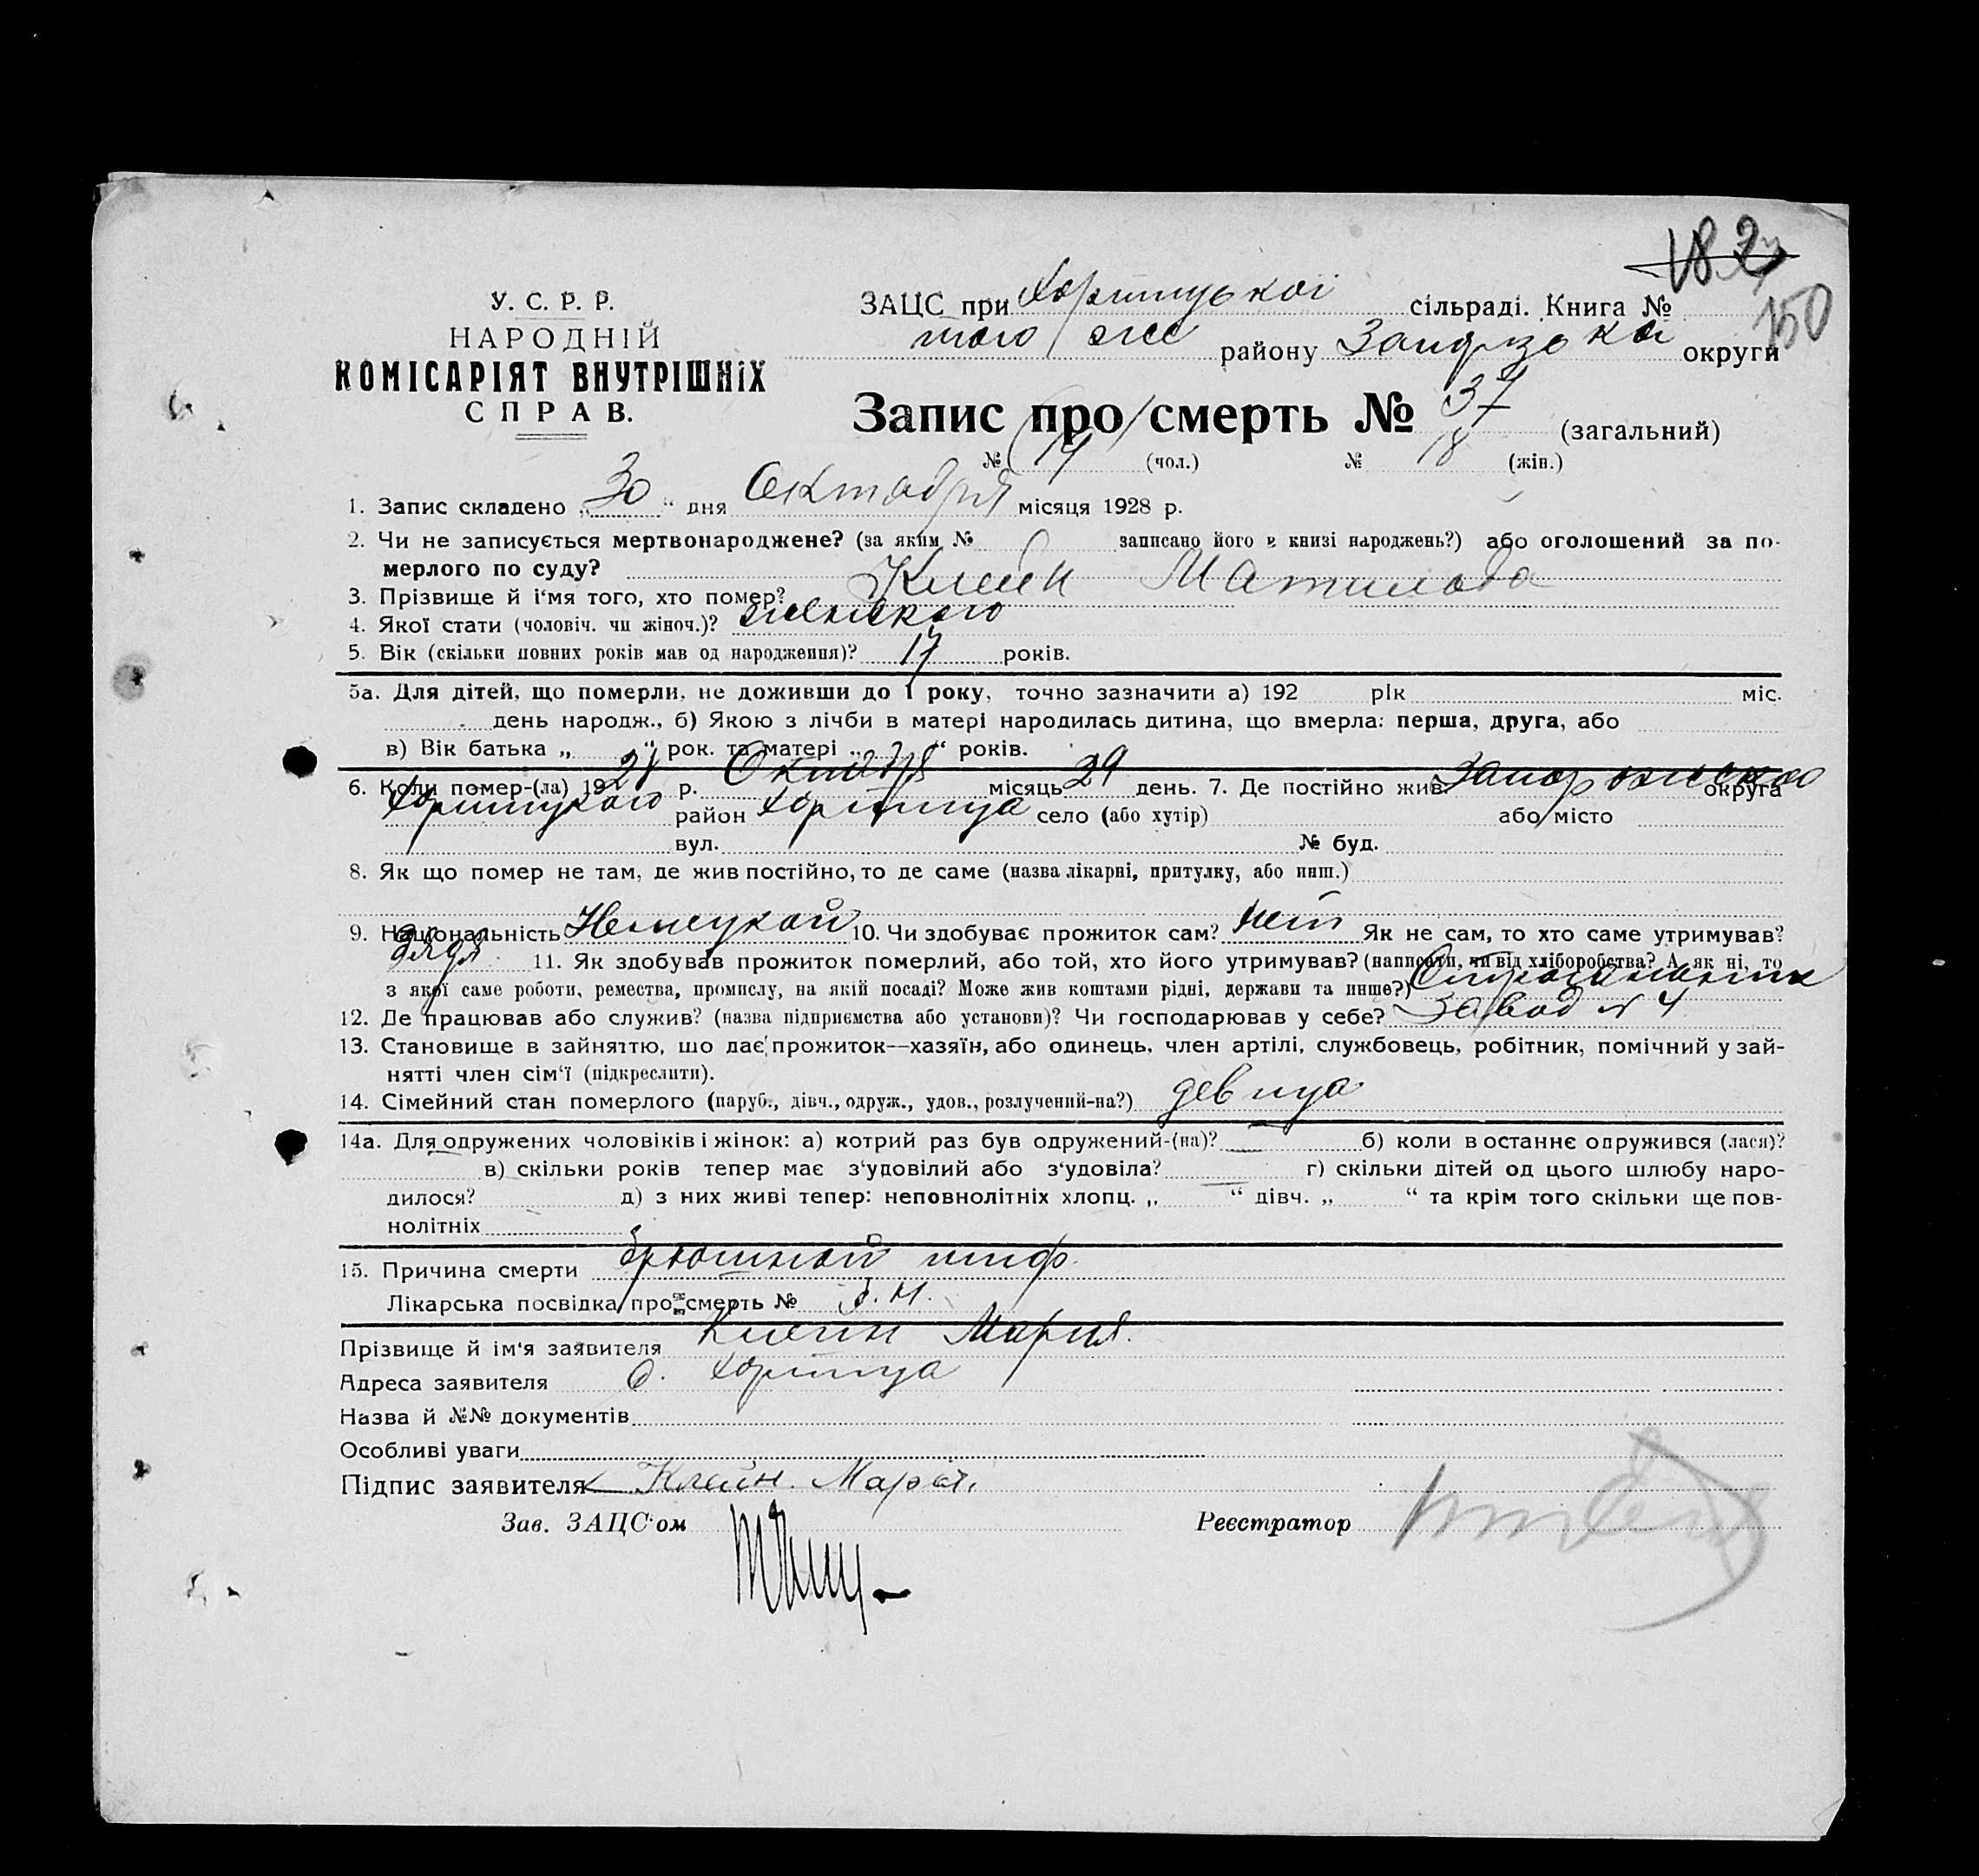 182
150
У. С. Р. Р.
НАРОДНІЙ
КОМІСАРІЯТ ВНУТРІШНІХ
СПРАВ.
ЗАЦС при Хортицькоі сільраді. Книга №
того же району округи
Запис про смерть № 37 (загальний)
№ (чол.) № 18 (жін.)
1. Запис складено „30“ дня Октября місяця 1928 р.
2. Чи не записується мертвонароджене? (за яким № записано його в книзі народжень?) або оголошений за по-
мерлого по суду?
3. Прізвище й і‘мя того, хто помер? Клейн Матильда
4. Якої стати (чоловіч. чи жіноч.)? женского
5. Вік (скільки повних років мав од народження)? 17 років.
5а. Для дітей, що померли, не доживши до 1 року, точно зазначити а) 192 рік міс.
день народж., б) Якою з лічби в матері народилась дитина, що вмерла: перша, друга, або
в) Вік батька „ “ рок. та матері „ “ років.
6. Коли помер-(ла) 1928 р. Октября місяць 29 день. 7. Де постійно жив. округа
Хортицкого район Хортица село (або хутір) або місто
вул. № буд.
8. Як що помер не там, де жив постійно, то де саме (назва лікарні, притулку, або инш.)
9. Національність Немецкой 10. Чи здобуває прожиток сам? нет Як не сам, то хто саме утримував?
дядя 11. Як здобував прожиток померлий, або той, хто його утримував? (написати, чи від хліборобства? А як ні, то
з якої саме роботи, ремества, промислу, на якій посаді? Може жив коштами рідні, держави та инше?)
12. Де працював або служив? (назва підприємства або установи)? Чи господарював у себе? Завод № 4
13. Становище в зайняттю, що дає прожиток—хазяїн, або одинець, член артілі, службовець, робітник, помічний у зай-
нятті член сім‘ї (підкреслити).
14. Сімейний стан померлого (паруб., дівч., одруж., удов., розлучений-на?) девица
14а. Для одружених чоловіків і жінок: а) котрий раз був одружений-(на)? б) коли в останнє одружився (лася)?
в) скільки років тепер має з‘удовілий або з‘удовіла? г) скільки дітей од цього шлюбу наро-
дилося? д) з них живі тепер: неповнолітніх хлопц. „ “ дівч. „ “ та крім того скільки ще пов-
нолітніх
15. Причина смерти брюшной тиф
Лікарська посвідка про смерть №
Прізвище й ім‘я заявителя Клейн Мария.
Адреса заявителя с. Хортица
Назва й №№ документів
Особливі уваги
Підпис заявителя Клейн. Мария.
Зав. ЗАЦС‘ом Реєстратор